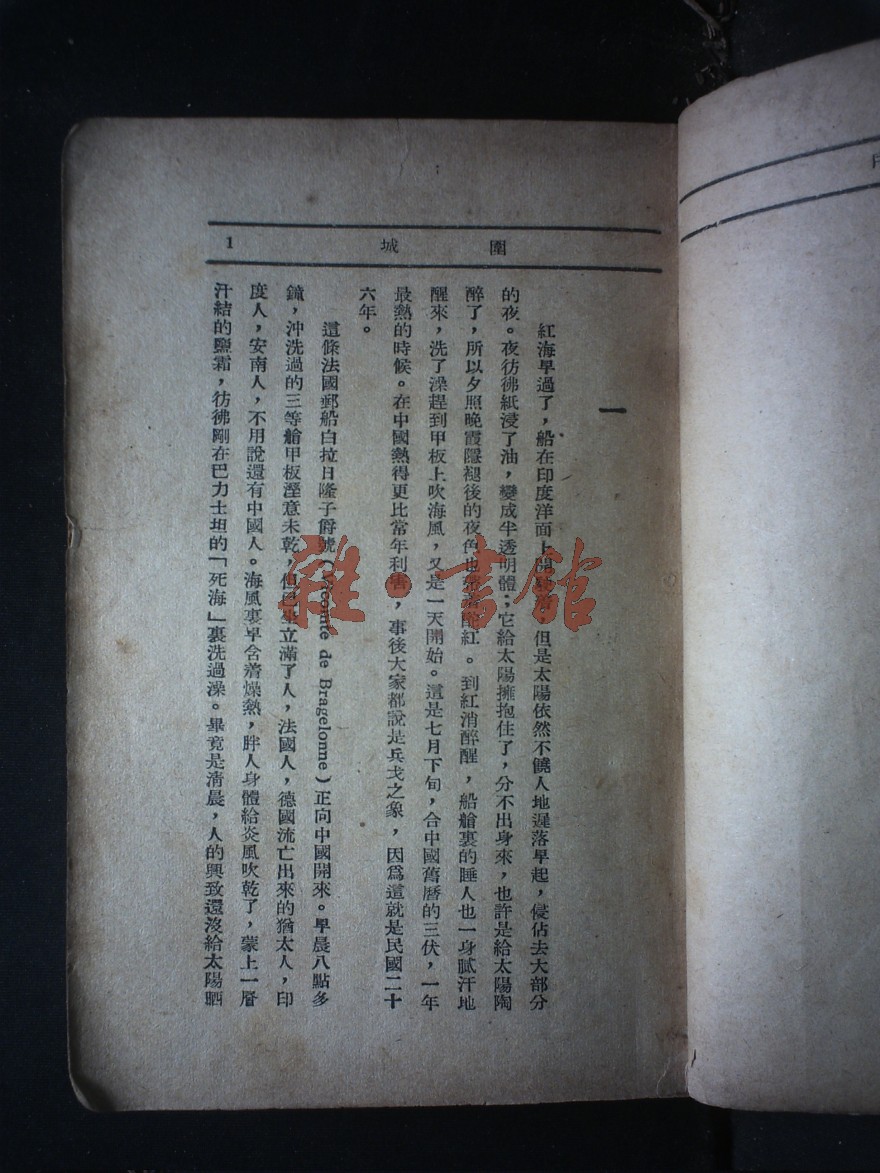 圍城
1
一
紅海早過了，船在印度洋面上開駛着，但是太陽依然不饒人地遲落早起，侵佔去大部分
的夜。夜彷彿紙浸了油，變成半透明體；它給太陽擁抱住了，分不出身來，也許是給太陽陶
醉了，所以夕照晚霞隱褪後的夜色也帶着酡紅。到紅消醉醒，船艙裏的睡人也一身膩汗地
醒來，洗了澡趕到甲板上吹海風，又是一天開始。這是七月下旬，合中國舊曆的三伏，一年
最熱的時候。在中國熱得更比常年利害，事後大家都說是兵戈之象，因爲這就是民國二十
六年。
這條法國郵船白拉日隆子爵號（Vicomte de Bragelonne）正向中國開來。早晨八點多
鐘，沖洗過的三等艙甲板溼意未乾，但已坐立滿了人，法國人，德國流亡出來的猶太人，印
度人，安南人，不用說還有中國人。海風裏早含着燥熱，胖人身體給炎風吹乾了，蒙上一層
汗結的鹽霜，彷彿剛在巴力士坦的「死海」裏洗過澡。畢竟是清晨，人的興致還沒給太陽晒
雜·書館